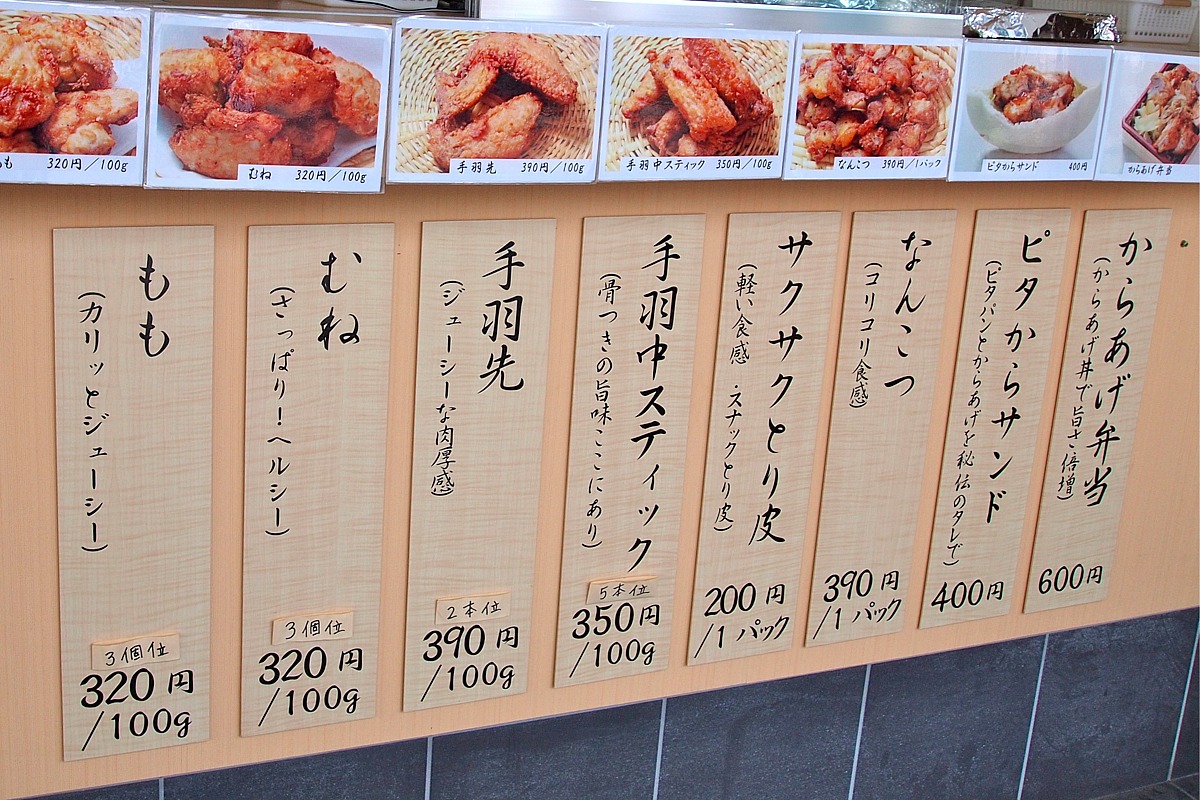 も 320円/100g
むね 320円/100g
手羽先 390円/100g
手羽中スティック 350円/100g
なんこつ 390円/1パック
ピタからサンド 400円
からあげ弁当
もも
(カリッとジューシー)
3個位
320円
/100g
むね
(さっぱり!ヘルシー)
3個位
320円
/100g
手羽先
(ジューシーな肉厚感)
2本位
390円
/100g
手羽中スティック
(骨つきの旨味ここにあり)
5本位
350円
/100g
サクサクとり皮
(軽い食感 スナックとり皮)
200円
/1パック
なんこつ
(コリコリ食感)
390円
/1パック
ピタからサンド
(ピタパンとからあげを秘伝のタレで)
400円
からあげ弁当
(からあげ丼で旨さ倍増)
600円